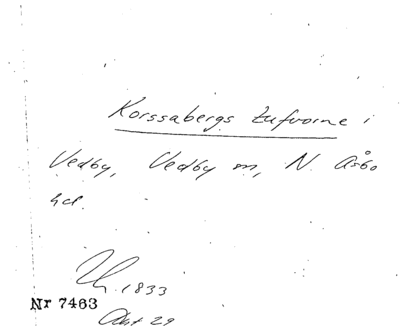 Korssabergs tufvorne i
Vedby, Vedby m, N. Åsbo
hd.
Th. 1833
Nr 7463
Akt 29